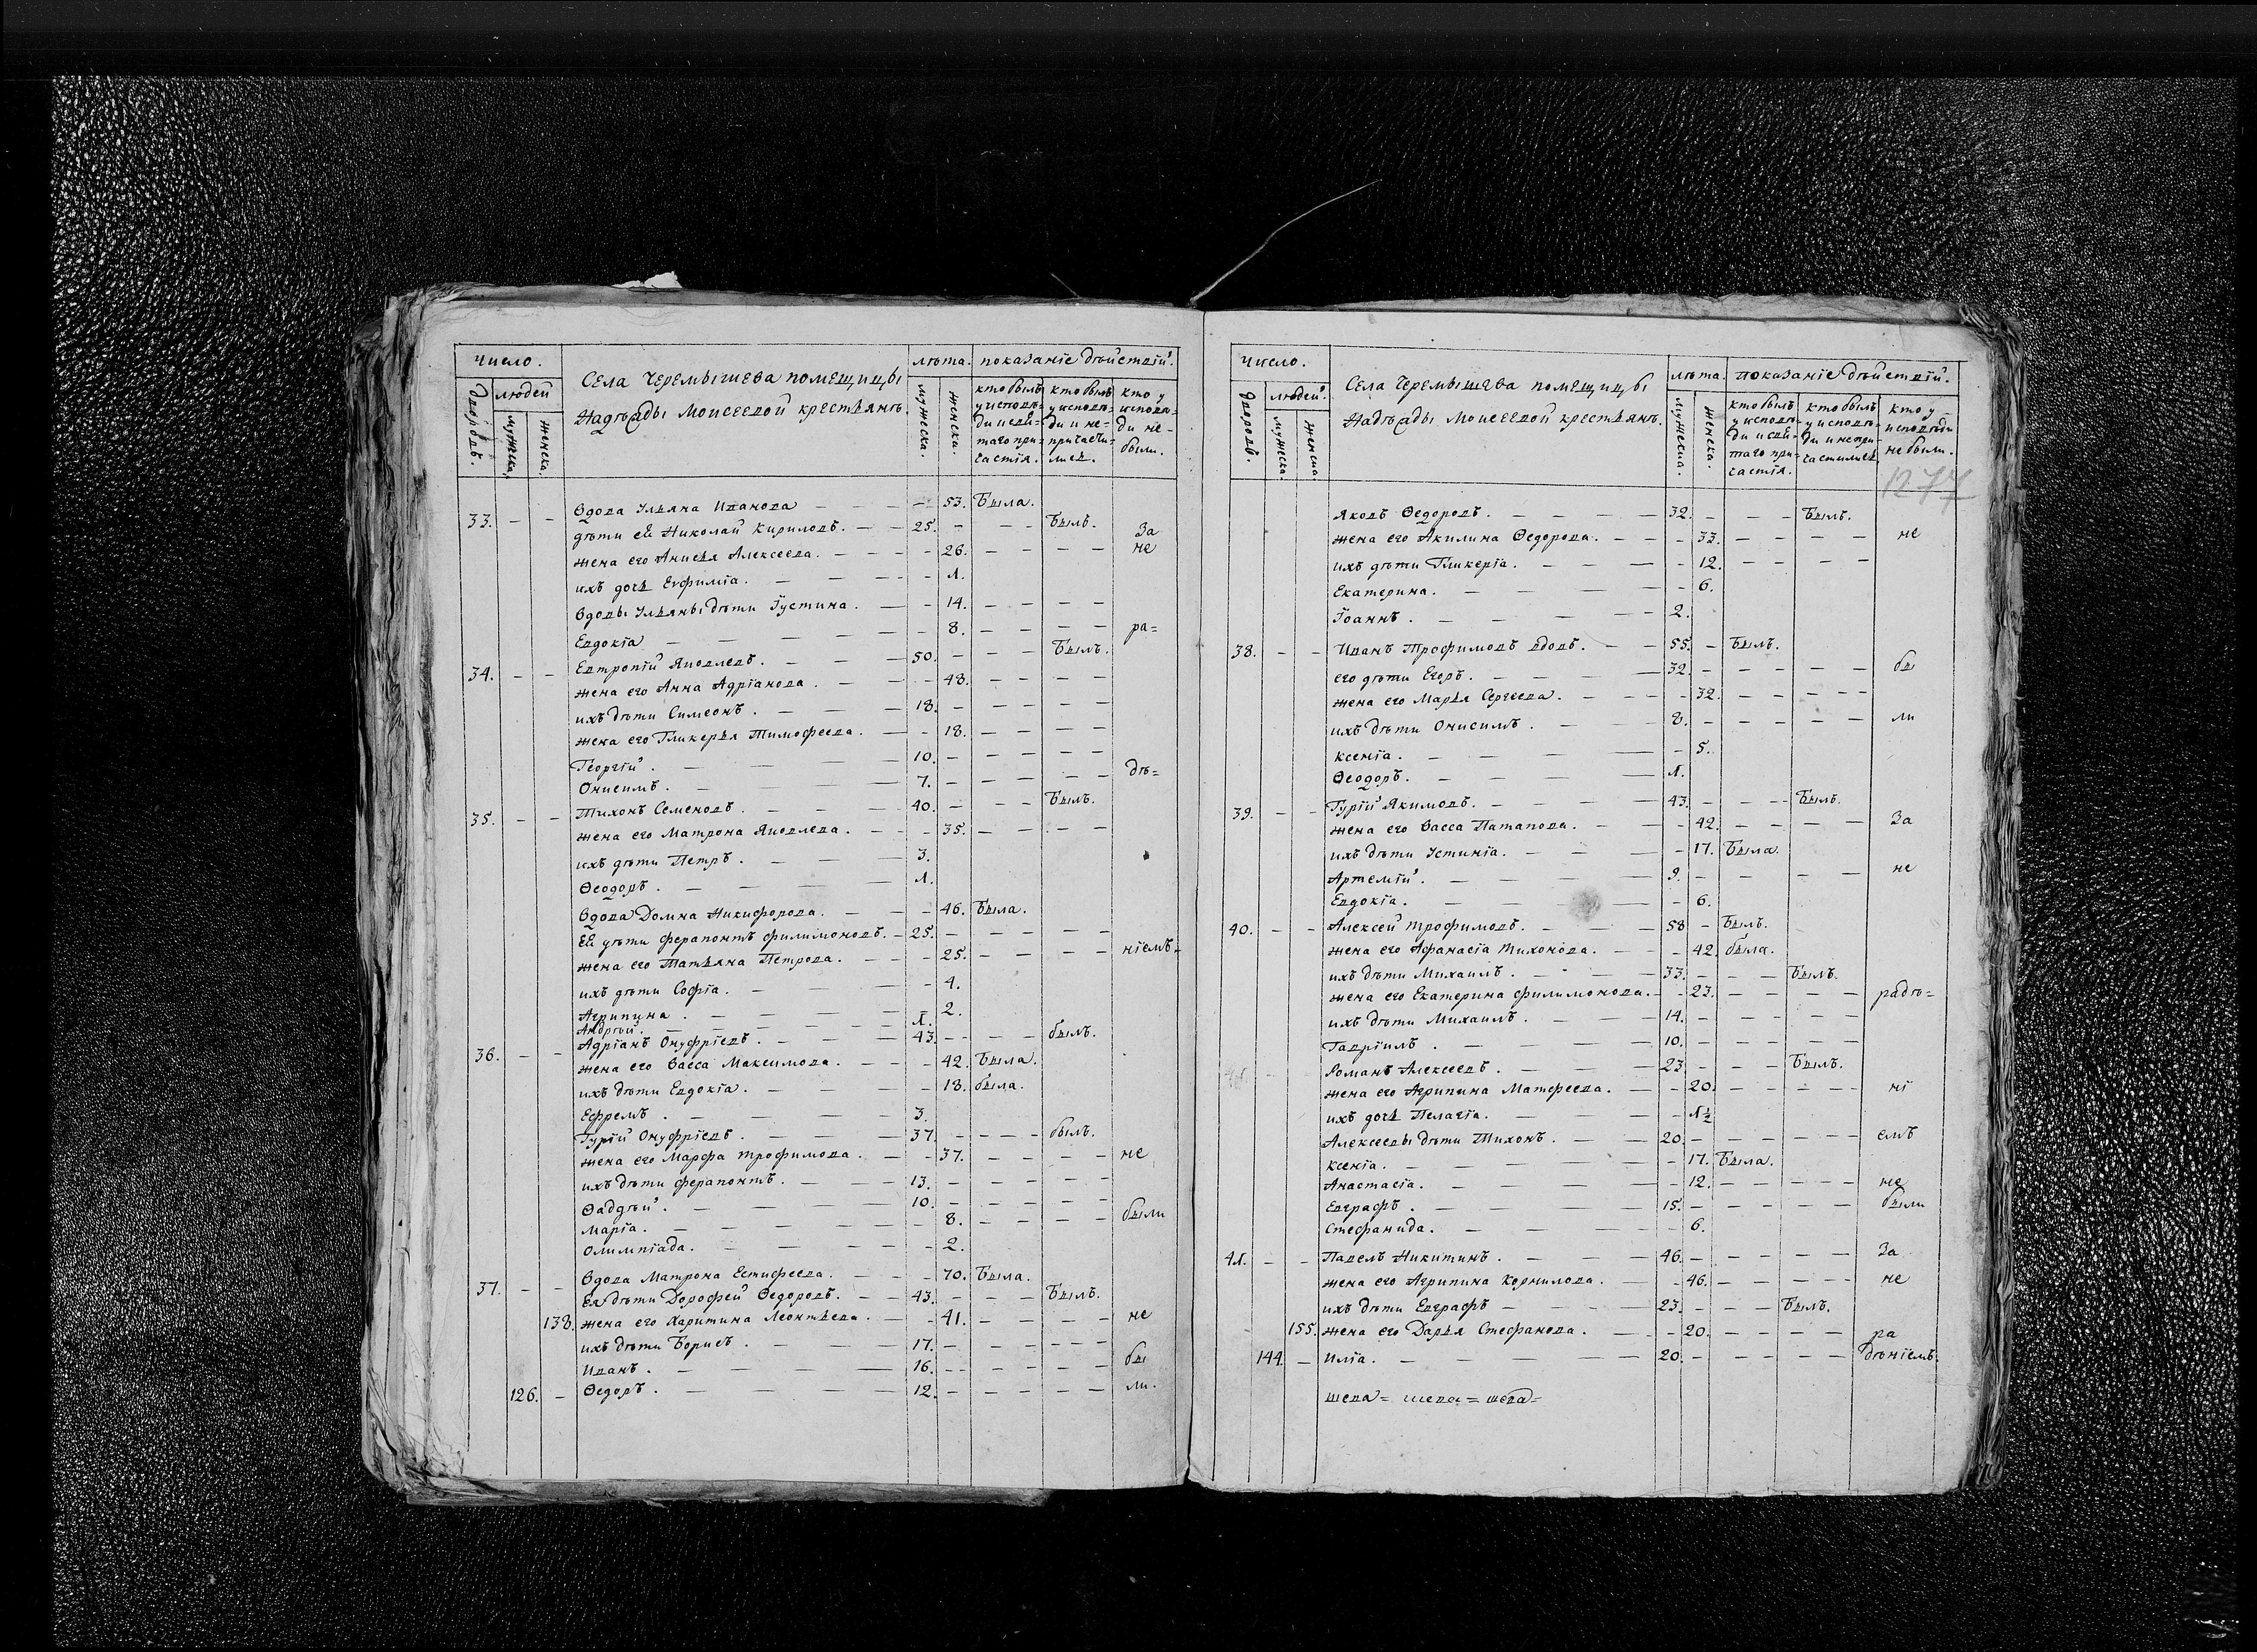 число.
лѣта. показанїе дѣйствїй.
Села Черемышева помѣщицы
Надѣжды Моисеевой крестьянъ.
дворовъ.
людей
мужеска.
женска.
мужеска.
женска.
кто былъ
у исповѣ-
ди и свя-
таго при-
частїя.
кто былъ
у исповѣ-
ди и не-
причасти-
лися.
кто у
исповѣ-
ди не-
были.
Вдова Ульяна Иванова — 53. Была.
33. — — дѣти ей Николай Кириловъ. — 25. — — Былъ. За
жена его Анисья Алексеева. — 26. — — не
ихъ дочь Евфимїа. — 1.
Вдовы Ульяны дѣти Їустина. — 14. — —
Евдокїа — 8. — — ра=
34. — — Евтропїй Яковлевъ. — 50. — — Былъ.
жена его Анна Адрїанова. — 48. — —
ихъ дѣти Симеонъ. — 18. — —
жена его Гликерья Тимофеева. — 18. — —
Георгїй. — 10. — —
Онисимъ. — 7. — — дѣ=
35. — — Тихонъ Семеновъ. — 40. — — Былъ.
жена его Матрона Яковлева. — 35. — —
ихъ дѣти Петръ. — 3.
Ѳеодоръ. — 1.
Вдова Домна Никифорова. — 46. Была.
Ей дѣти Ферапонтъ Филимоновъ. — 25. — —
жена его Татьяна Петрова. — 25. — — нїемъ=
ихъ дѣти Софїа. — 4.
Агрипина. — 2.
Андрѣй. — 1.
36. — — Адрїанъ Онуфрїевъ. — 43. — — былъ.
жена его Васса Максимова. — 42. Была.
ихъ дѣти Евдокїа. — 18. была.
Ефремъ. — 3.
Гурїй Онуфрїевъ. — 37. — — былъ.
жена его Марфа Трофимова. — 37. — — не
ихъ дѣти Ферапонтъ. — 13. — —
Ѳаддѣй. — 10. — —
Марїа. — 8. — — были
Олимпїада. — 2.
Вдова Матрона Естифеева. — 70. Была.
37. — — Ея дѣти Дорофей Ѳедоровъ. — 43. — — Былъ.
138. жена его Харитина Леонтьева. — 41. — — не
ихъ дѣти Борисъ. — 17. — —
Иванъ. — 16. — — бы
126. — Ѳедоръ. — 12. — — ли.
число.
лѣта. показанїе дѣйствїй.
Села Черемышева помѣщицы
Надѣжды Моисеевой крестьянъ.
дворовъ.
людей.
мужеска.
женска.
мужеска.
женска.
кто былъ
у исповѣ-
ди и свя-
таго при-
частїя.
кто былъ
у исповѣ-
ди и непри-
частился.
кто у
исповѣди
не были.
1277
Яковъ Ѳедоровъ. — 32. — — Былъ.
жена его Акилина Ѳедорова. — 33. — — не
ихъ дѣти Гликерїа. — 12. — —
Екатерина. — 6.
Їоаннъ. — 2.
38. — — Иванъ Трофимовъ вдовъ. — 55. — Былъ.
его дѣти Егоръ. — 32. — — бы
жена его Марья Сергеева. — 32. — —
ихъ дѣти Онисимъ. — 8. — — ли
Ксенїа. — 5.
Ѳеодоръ. — 1.
39. — — Гурїй Якимовъ. — 43. — — Былъ.
жена его Васса Патапова. — 42. — — За
ихъ дѣти Устинїа. — 17. Была.
Артемїй. — 9. — — не
Евдокїа. — 6.
40. — — Алексей Трофимовъ. — 58 — Былъ.
жена его Афанасїа Тихонова. — 42. была.
ихъ дѣти Михаилъ. — 33. — — Былъ.
жена его Екатерина Филимонова. — 23. — — радѣ=
ихъ дѣти Михаилъ. — 14. — —
Гаврїилъ. — 10. — —
Романъ Алексеевъ. — 23. — — Былъ.
жена его Агрипина Матфеева. — 20. — — нї
ихъ дочь Пелагїа. — 1½
Алексеевы дѣти Тихонъ. — 20. — — емъ
Ксенїа. — 17. Была.
Анастасїа. — 12. — — не
Евграфъ. — 15. — — были
Стефанида. — 6.
41. — — Павелъ Никитинъ. — 46. — — За
жена его Агрипина Корнилова. — 46. — — не
ихъ дѣти Евграфъ — 23. — — Былъ.
155. жена его Дарья Стефанова. — 20. — — ра
144. — Илїа. — 20. — — дѣнїемъ.
шева= шева= шева=